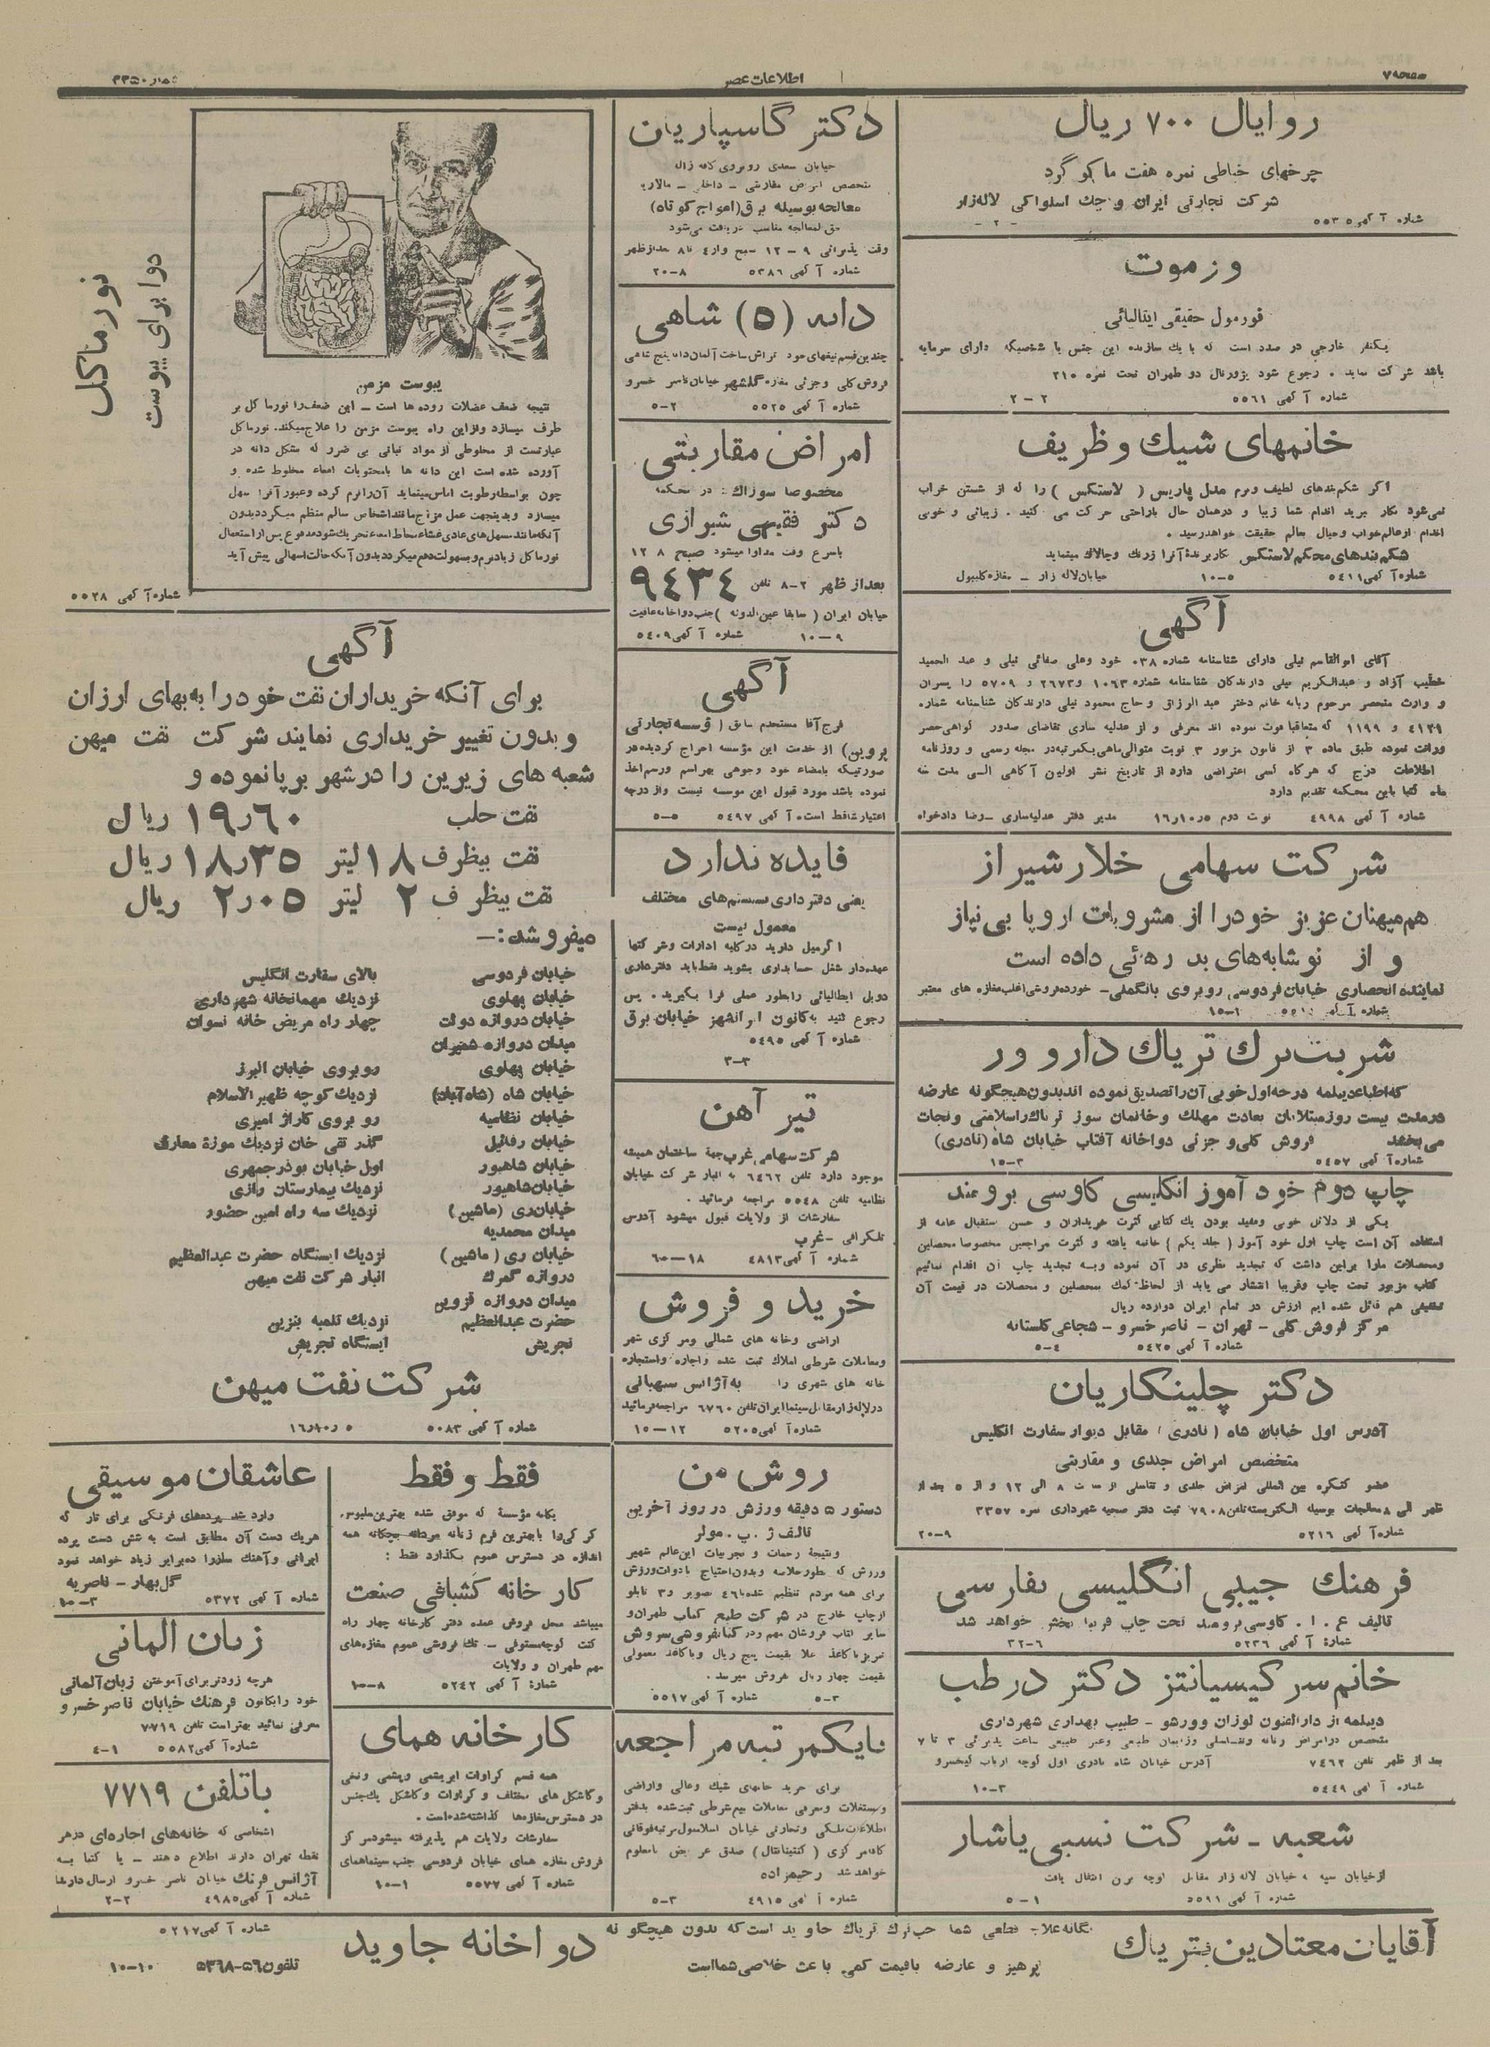 صفحه ۷
اطلاعات عصر
شماره ۳۳۵۰
روایال ۷۰۰ ریال
چرخهای خیاطی نمره هفت ماکو گرد
شرکت تجارتی ایران و چک اسلواکی لاله‌زار
شماره آگهی ۵۵۳۵
۲-
وزموت
فورمول حقیقی ایتالیائی
یکنفر خارجی در صدد است که با یک سازنده این جنس یا شخصیکه دارای سرمایه
باشد شرکت نماید . رجوع شود بژورنال دو طهران تحت نمره ۲۱۰
شماره آگهی ۵۵۶۱ ۲-۲
خانمهای شیک و ظریف
اگر شکم‌بندهای لطیف و نرم مدل پاریس ( لاستکس ) را که از شستن خراب
نمی‌شود بکار برید اندام شما زیبا و درهمان حال براحتی حرکت می کنید . زیبائی و خوبی
اندام از عالم خواب و خیال بعالم حقیقت خواهد رسید .
شکم‌بندهای محکم لاستکس بکار برنده آنرا زرنگ و چالاک مینماید
شماره آگهی ۵۴۱۱ ۵-۱۰ خیابان لاله زار - مغازه کلیبول
آگهی
آقای ابوالقاسم نیلی دارای شناسنامه شماره ۰۳۸ خود وعلی صفائی نیلی و عبد الحمید
خطیب آزاد و عبدالکریم نیلی دارندگان شناسنامه شماره ۱۰۶۳ و ۲۶۷۳ و ۵۷۰۹ را پسران
و وراث منحصر مرحوم ربابه خانم دختر عبد الرزاق و حاج محمود نیلی دارندگان شناسنامه شماره
۴۱۳۹ و ۱۱۹۹ که متعاقبا فوت نموده اند معرفی و از عدلیه ساری تقاضای صدور گواهی حصر
وراثت نموده طبق ماده ۳ از قانون مزبور ۳ نوبت متوالی ماهی یکمرتبه در مجله رسمی و روزنامه
اطلاعات درج که هرگاه کسی اعتراضی دارد از تاریخ نشر اولین آگاهی الی مدت سه
ماه کتبا باین محکمه تقدیم دارد
شماره آگهی ۴۹۹۸ نوبت دوم ۵ر۱۰ر۱۶ مدیر دفتر عدلیه ساری - رضا دادخواه
شرکت سهامی خلارشیراز
هم‌میهنان عزیز خودرا از مشروبات اروپا بی نیاز
و از نوشابه‌های بد رهائی داده است
نماینده انحصاری خیابان فردوسی روبروی بانک ملی - خورده فروشی اغلب مغازه های معتبر
۱-۱۵
شربت ترک تریاک داروور
که اطباء دیپلمه درجه اول خوبی آن را تصدیق نموده اند بدون هیچگونه عارضه
در مدت بیست روز مبتلایان بعادت مهلک و خانمان سوز تریاک را سلامتی و نجات
می‌بخشد فروش کلی و جزئی دواخانه آفتاب خیابان شاه (نادری)
شماره آگهی ۵۴۵۷ ۳-۱۵
چاپ دوم خود آموز انگلیسی کاوسی برومند
یکی از دلائل خوبی و مفید بودن یک کتابی کثرت خریداران و حسن استقبال عامه از
استفاده آن است چاپ اول خود آموز ( جلد یکم ) خاتمه یافته و کثرت مراجعین مخصوصا محصلین
و محصلات مارا براین داشت که تجدید نظری در آن نموده و به تجدید چاپ آن اقدام نمائیم
کتاب مزبور تحت چاپ و قریبا انتشار می یابد از لحاظ کمک بمحصلین و محصلات در قیمت آن
تخفیفی هم قائل شده ایم ارزش در تمام ایران دوازده ریال
مرکز فروش کلی - تهران - ناصر خسرو - شجاعی گلستانه
شماره آگهی ۵۴۲۵ ۴-۵
دکتر چلینگاریان
آدرس اول خیابان شاه ( نادری ) مقابل دیوار سفارت انگلیس
متخصص امراض جلدی و مقاربتی
عضو کنگره بین المللی امراض جلدی و تناسلی از ساعت ۸ الی ۱۲ و از ۵ بعد از
ظهر الی ۸ معالجات بوسیله الکتریسته تلفن ۷۹۰۸ ثبت دفتر صحیه شهرداری نمره ۳۳۵۷
شماره آگهی ۵۲۱۶ ۹-۲۰
فرهنگ جیبی انگلیسی بفارسی
تالیف ع . ا . کاوسی برومند تحت چاپ قریبا منتشر خواهد شد
شماره آگهی ۵۲۳۶ ۶-۳۲
خانم سرکیسیانتز دکتر درطب
دیپلمه از دارالفنون لوزان وورشو - طبیب بهداری شهرداری
متخصص در امراض زنانه و تناسلی وزایمان طبیعی و غیر طبیعی ساعت پذیرائی ۳ تا ۷
بعد از ظهر تلفن ۷۴۶۲ آدرس خیابان شاه نادری اول کوچه ارباب کیخسرو
شماره آگهی ۵۴۴۹ ۳-۱۰
شعبه - شرکت نسبی یاشار
از خیابان سپه به خیابان لاله زار مقابل کوچه برلن انتقال یافت
شماره آگهی ۵۵۹۹ ۱-۵
دکتر گاسپاریان
خیابان سعدی روبروی کافه ژاله
متخصص امراض مقاربتی - داخلی - مالاریا
معالجه بوسیله برق (امواج کوتاه)
حق المعالجه مناسب دریافت می‌شود
وقت پذیرائی ۹ - ۱۲ صبح و از ۴ تا ۸ بعدازظهر
شماره آگهی ۵۳۸۶ ۸-۲۰
دانه (۵) شاهی
چندین قسم تیغهای خود تراش ساخت آلمان دانه پنج شاهی
فروش کلی و جزئی مغازه گلشهر خیابان ناصر خسرو
شماره آگهی ۵۵۲۵ ۲-۵
امراض مقاربتی
مخصوصا سوزاک : در محکمه
دکتر فقیهی شیرازی
باسرع وقت مداوا میشود صبح ۸ ۱۲
بعداز ظهر ۲-۸ تلفن ۹۴۳۴
خیابان ایران ( سابقا عین الدوله ) جنب دواخانه عافیت
۹-۱۰ شماره آگهی ۵۴۰۹
آگهی
فرج آقا مستخدم سابق ( مؤسسه تجارتی
پروین) از خدمت این مؤسسه اخراج گردیده در
صورتیکه بامضاء خود وجوهی بهراسم ورسم اخذ
نموده باشد مورد قبول این موسسه نیست و از درجه
اعتبار ساقط است . آگهی ۵۴۹۷ ۵-۵
فایده ندارد
یعنی دفترداری بسیستم‌های مختلف
معمول نیست
اگر میل دارید در کلیه ادارات و شرکتها
عهده‌دار شغل حسابداری بشوید فقط باید دفترداری
دوبل ایطالیائی را بطور عملی فرا بگیرید . پس
رجوع کنید به کانون ایرانشهر خیابان برق
شماره آگهی ۵۴۹۵
۳-۳
تیر آهن
شرکت سهامی غرب جهة ساختمان همیشه
موجود دارد تلفن ۶۴۶۲ به انبار شرکت خیابان
نظامیه تلفن ۵۵۴۸ مراجعه فرمائید .
سفارشات از ولایات قبول میشود آدرس
تلگرافی - غرب
شماره آگهی ۴۸۱۳ ۱۸-۶۰
خرید و فروش
اراضی وخانه های شمالی ومرکزی شهر
ومعاملات شرطی املاک ثبت شده واجاره واستجاره
خانه های شهری را به آژانس سبهانی
در لاله‌زار مقابل سینما ایران تلفن ۶۷۶۰ مراجعه فرمائید
شماره آگهی ۵۲۰۵ ۱۲-۱۵
روش من
دستور ۵ دقیقه ورزش در روز آخرین
تالیف ژ . پ . مولر
ونتیجه زحمات و تجربیات این عالم شهیر
ورزش که بطور خلاصه و بدون احتیاج بادوات ورزش
برای همه مردم تنظیم شده با ۴۶ تصویر و ۳ تابلو
از چاپ خارج در شرکت طبع کتاب طهران و
سایر کتاب فروشان مهم و در کتابفروشی سروش
تبریز با کاغذ اعلا بقیمت پنج ریال و با کاغذ معمولی
بقیمت چهار ریال بفروش میرسد .
۳-۵ شماره آگهی ۵۵۱۷
بایکمرتبه مراجعه
برای خرید خانهای شیک وعالی و اراضی
ومستغلات ومعرفی معاملات بیع شرطی ثبت شده بدفتر
اطلاعات ملکی وتجارتی خیابان اسلامبول مرتبه فوقانی
کافه مرکزی (کنتیننتال) صدق عرایض ما معلوم
خواهد شد رحیمزاده
شماره آگهی ۴۹۱۵ ۳-۵
نورماکل
دوا برای یبوست
یبوست مزمن
نتیجه ضعف عضلات روده ها است - این ضعف را نورماکل بر
طرف میسازد و از این راه یبوست مزمن را علاج میکند . نورماکل
عبارتست از مخلوطی از مواد نباتی بی ضرر که بشکل دانه در
آورده شده است این دانه ها بامحتویات امعاء مخلوط شده و
چون بواسطه رطوبت آماس مینماید آن را نرم کرده وعبور آنرا سهل
میسازد وبدینجهت عمل مزاج مانند اشخاص سالم منظم میگردد بدون
آنکه مانند مسهل های عادی غشاء مخاط امعاء تحریک شود مدفوع پس از استعمال
نورماکل زیاد نرم و بسهولت دفع میگردد بدون آنکه حالت اسهالی پیش آید
شماره آگهی ۵۵۲۸
آگهی
برای آنکه خریداران نفت خود را به‌بهای ارزان
و بدون تغییر خریداری نمایند شرکت نفت میهن
شعبه های زیرین را در شهر برپا نموده و
نفت حلب ۱۹ر۶۰ ریال
نفت بیظرف ۱۸ لیتر ۱۸ر۳۵ ریال
نفت بیظرف ۲ لیتر ۲ر۰۵ ریال
میفروشد :-
خیابان فردوسی بالای سفارت انگلیس
خیابان پهلوی نزدیک مهمانخانه شهرداری
خیابان دروازه دولت چهار راه مریض خانه نسوان
میدان دروازه شمیران
خیابان پهلوی روبروی خیابان البرز
خیابان شاه (شاه‌آباد) نزدیک کوچه ظهیر الاسلام
خیابان نظامیه رو بروی گاراژ امیری
خیابان رفائیل گذر تقی خان نزدیک موزه معارف
خیابان شاهپور اول خیابان بوذرجمهری
خیابان شاهپور نزدیک بیمارستان رازی
خیابان ری (ماشین) نزدیک سه راه امین حضور
میدان محمدیه
خیابان ری (ماشین) نزدیک ایستگاه حضرت عبدالعظیم
دروازه گمرک انبار شرکت نفت میهن
میدان دروازه قزوین
حضرت عبدالعظیم نزدیک تلمبه بنزین
تجریش ایستگاه تجریش
شرکت نفت میهن
شماره آگهی ۵۰۸۳ ۵ر۱۰ر۱۶
فقط و فقط
یگانه مؤسسهٔ که موفق شده بهترین ملبوس
کرکی را با بهترین فرم زنانه مردانه بچگانه همه
اندازه در دسترس عموم بگذارد فقط :
کارخانه کشبافی صنعت
میباشد محل فروش عمده دفتر کارخانه چهار راه
کنت کوچه مستوفی - تک فروشی عموم مغازه‌های
مهم طهران و ولایات
شماره آگهی ۵۲۴۲ ۸-۱۰
کارخانه همای
همه قسم کراوات ابریشمی و پشمی و نخی
و کاشکل های مختلف و کراوات و کاشکل یک جنس
در دسترس مغازه‌ها گذاشته شده است .
سفارشات ولایات هم پذیرفته میشود مرکز
فروش مغازه همای خیابان فردوسی جنب سینما همای
شماره آگهی ۵۵۷۷ ۱-۱۰
عاشقان موسیقی
وارد شد پرده‌های فرنگی برای تار که
هریک دست آن مطابق است به شش دست پرده
ایرانی و آهنگ ساز را ده برابر زیاد خواهد نمود
گل‌بهار - ناصریه
شماره آگهی ۵۳۷۲ ۳-۱۰
زبان آلمانی
هرچه زودتر برای آموختن زبان آلمانی
خود را بکانون فرهنگ خیابان ناصر خسرو
معرفی نمائید بهتر است تلفن ۷۷۱۹
شماره آگهی ۵۵۸۲ ۱-۴
با تلفن ۷۷۱۹
اشخاصی که خانه‌های اجاره‌ای در هر
نقطه تهران دارند اطلاع دهند - یا کتبا به
آژانس فرهنگ خیابان ناصر خسرو ارسال دارند
شماره آگهی ۴۹۸۵ ۲-۲
آقایان معتادین بتریاک
یگانه علاج قطعی شما حب ترک تریاک جاوید است که بدون هیچگونه
پرهیز و عارضه باقیمت کمی باعث خلاصی شمااست
دواخانه جاوید
شماره آگهی ۵۲۱۷
تلفون ۵۶-۵۳۶۸ ۱۰-۱۰